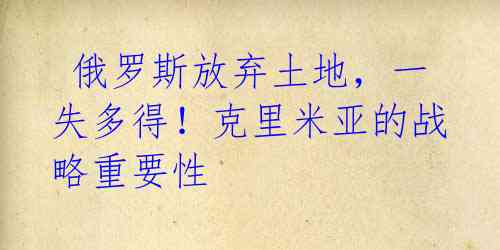 俄罗斯放弃土地，一
失多得！克里米亚的战
略重要性